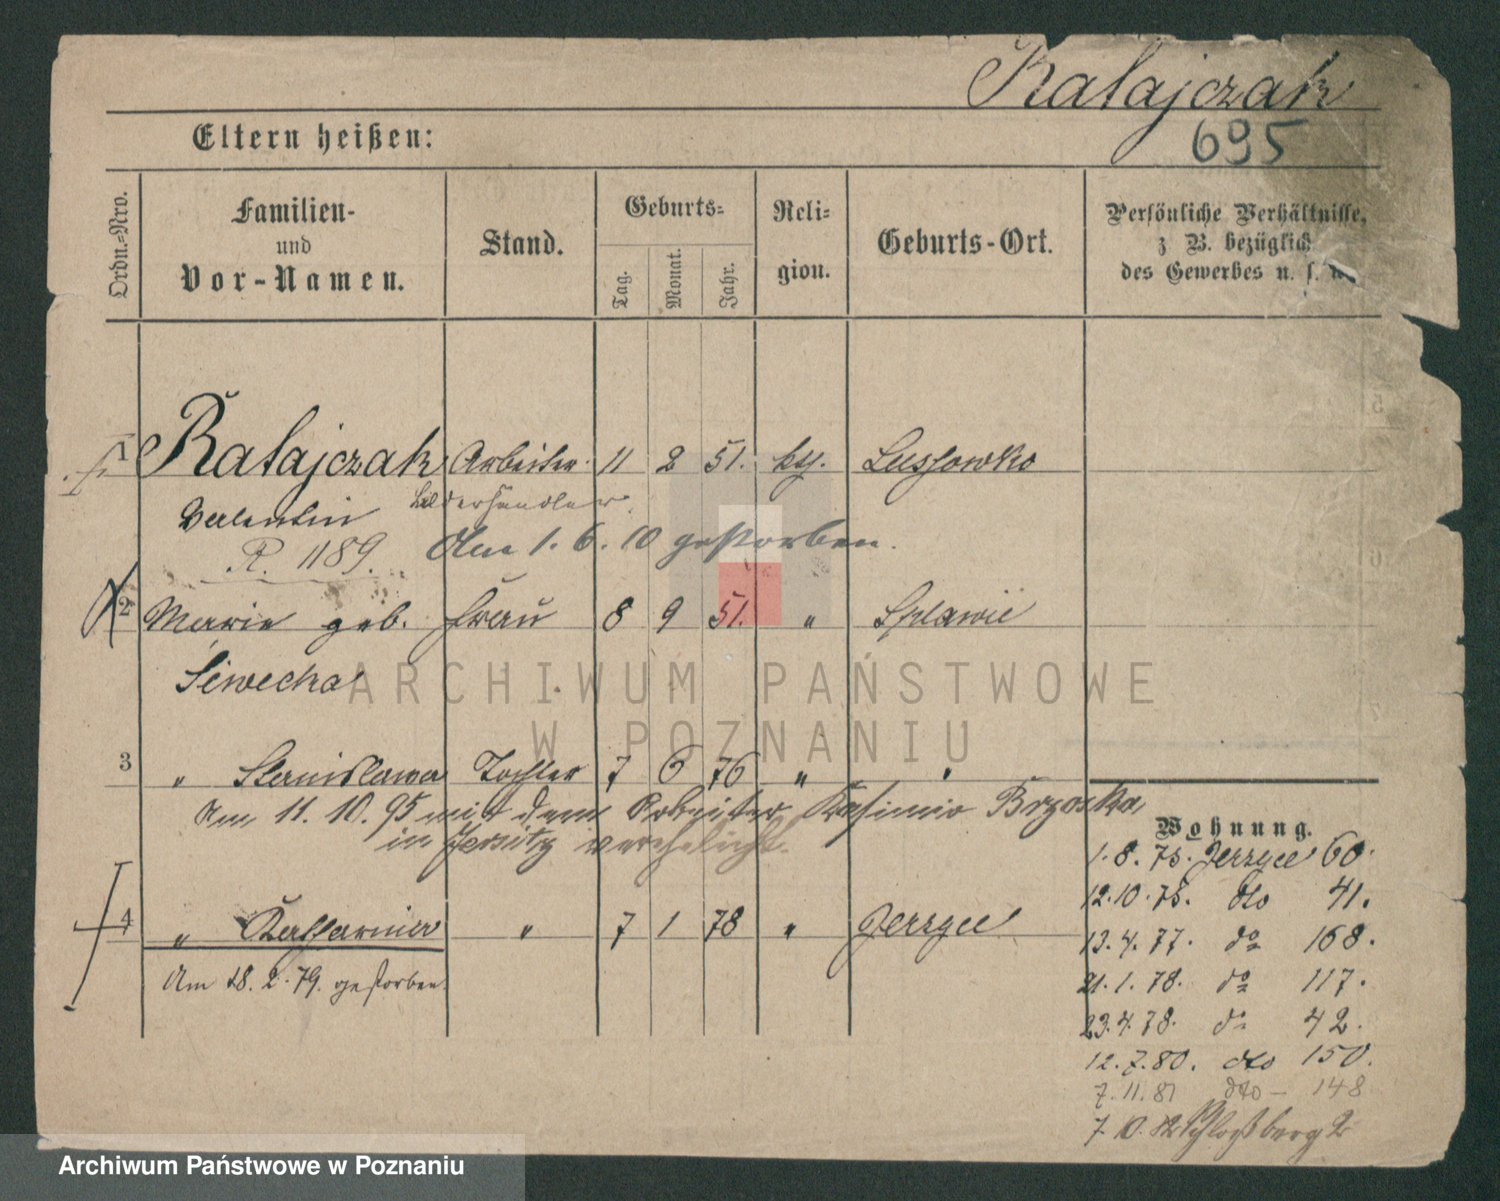 Ratajczak
695
Eltern heißen:
Ordn.-Nro.
Familien-
und
Vor-Namen.
Stand.
Geburts-
Tag.
Monat.
Jahr.
Reli-
gion.
Geburts-Ort.
Persönliche Verhältnisse,
z. B. bezüglich
des Gewerbes u. s. w.
1 Ratajczak Arbeiter 11 2 51. kth. Lussowko
Valentin
R. 1189. Am 1. 6. 10 gestorben.
2 Marie geb. Frau 8 9 51. "
Siwecka
3 " Stanislawa Tochter 7 6 76 " "
Am 11. 10. 95 mit dem Arbeiter Kasimir Brzoska
in Jersitz verehelicht.
4 " Katharina " 7 1 78 " Jerzyce
Am 18. 2. 79. gestorben.
Wohnung.
1. 8. 75. Jerzyce 60.
12. 10. 75. dto 41.
13. 4. 77. do 168.
21. 1. 78. do 117.
23. 4. 78. do 42.
12. 7. 80. dto 150.
7. 11. 81 dto - 148
7. 10. 82 Schloßberg 2
ARCHIWUM PAŃSTWOWE
W POZNANIU
Archiwum Państwowe w Poznaniu